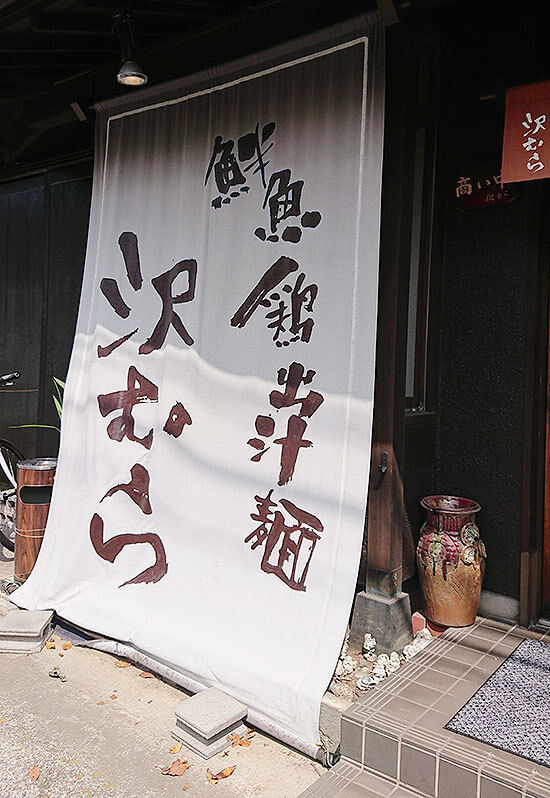 鮮魚鶏出汁麺
沢むら
沢むら